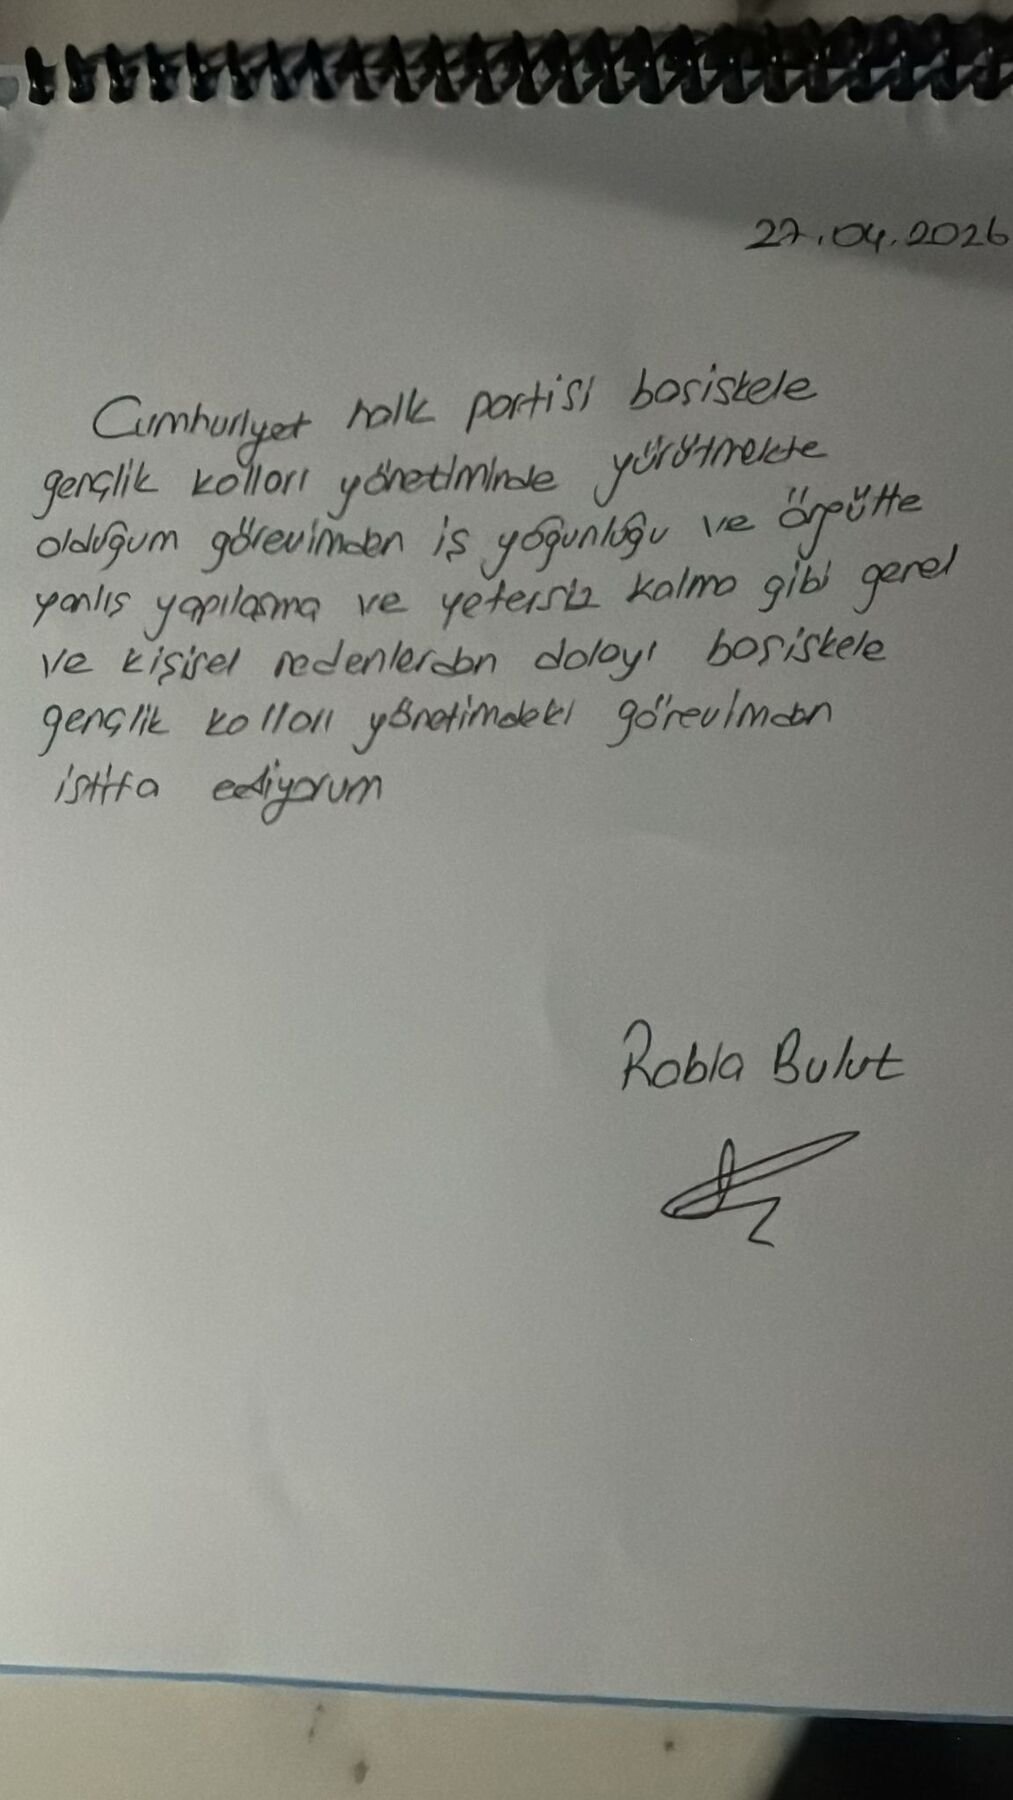 27.04.2026
Cumhuriyet halk partisi başiskele
gençlik kolları yönetiminde yürütmekte
olduğum görevimden iş yoğunluğu ve örgütte
yanlış yapılaşma ve yetersiz kalma gibi genel
ve kişisel nedenlerden dolayı başiskele
gençlik kolları yönetimdeki görevimden
istifa ediyorum
Rabia Bulut